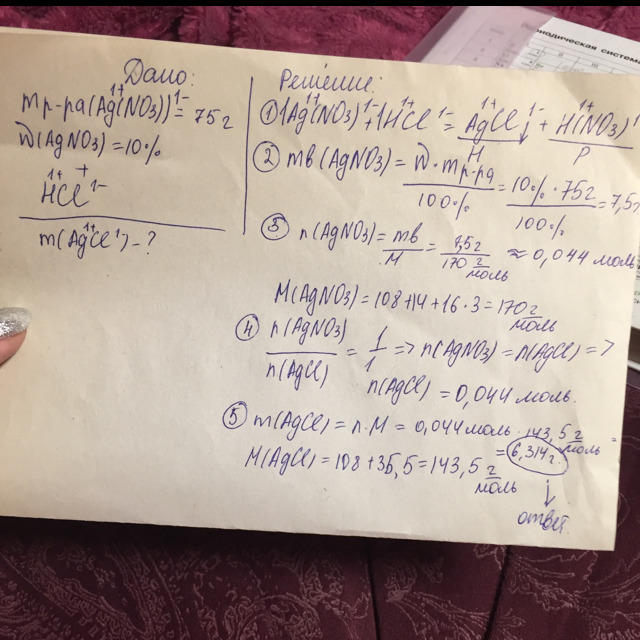 иодическая систем
Дано:
mр-ра(Ag¹⁺(NO₃))¹⁻= 75г
W(AgNO₃)=10%
+
H¹⁺Cl¹⁻
m(Ag¹⁺Cl¹⁻) - ?
Решение:
① 1Ag¹⁺(NO₃)¹⁻+1H¹⁺Cl¹⁻= Ag¹⁺Cl¹⁻↓ + H¹⁺(NO₃)¹
Н Р
② mв(AgNO₃)= W·mр-ра/100% = 10%·75г/100% =7,5г
③ n(AgNO₃)= mв/M = 7,5г/170 г/моль ≈ 0,044 моль
M(AgNO₃)=108+14+16·3=170 г/моль
④ n(AgNO₃)/n(AgCl) = 1/1 => n(AgNO₃)=n(AgCl) =>
n(AgCl) = 0,044 моль.
⑤ m(AgCl)= n·M = 0,044моль·143,5 г/моль =
= 6,314г.
M(AgCl)=108+35,5=143,5 г/моль
ответ